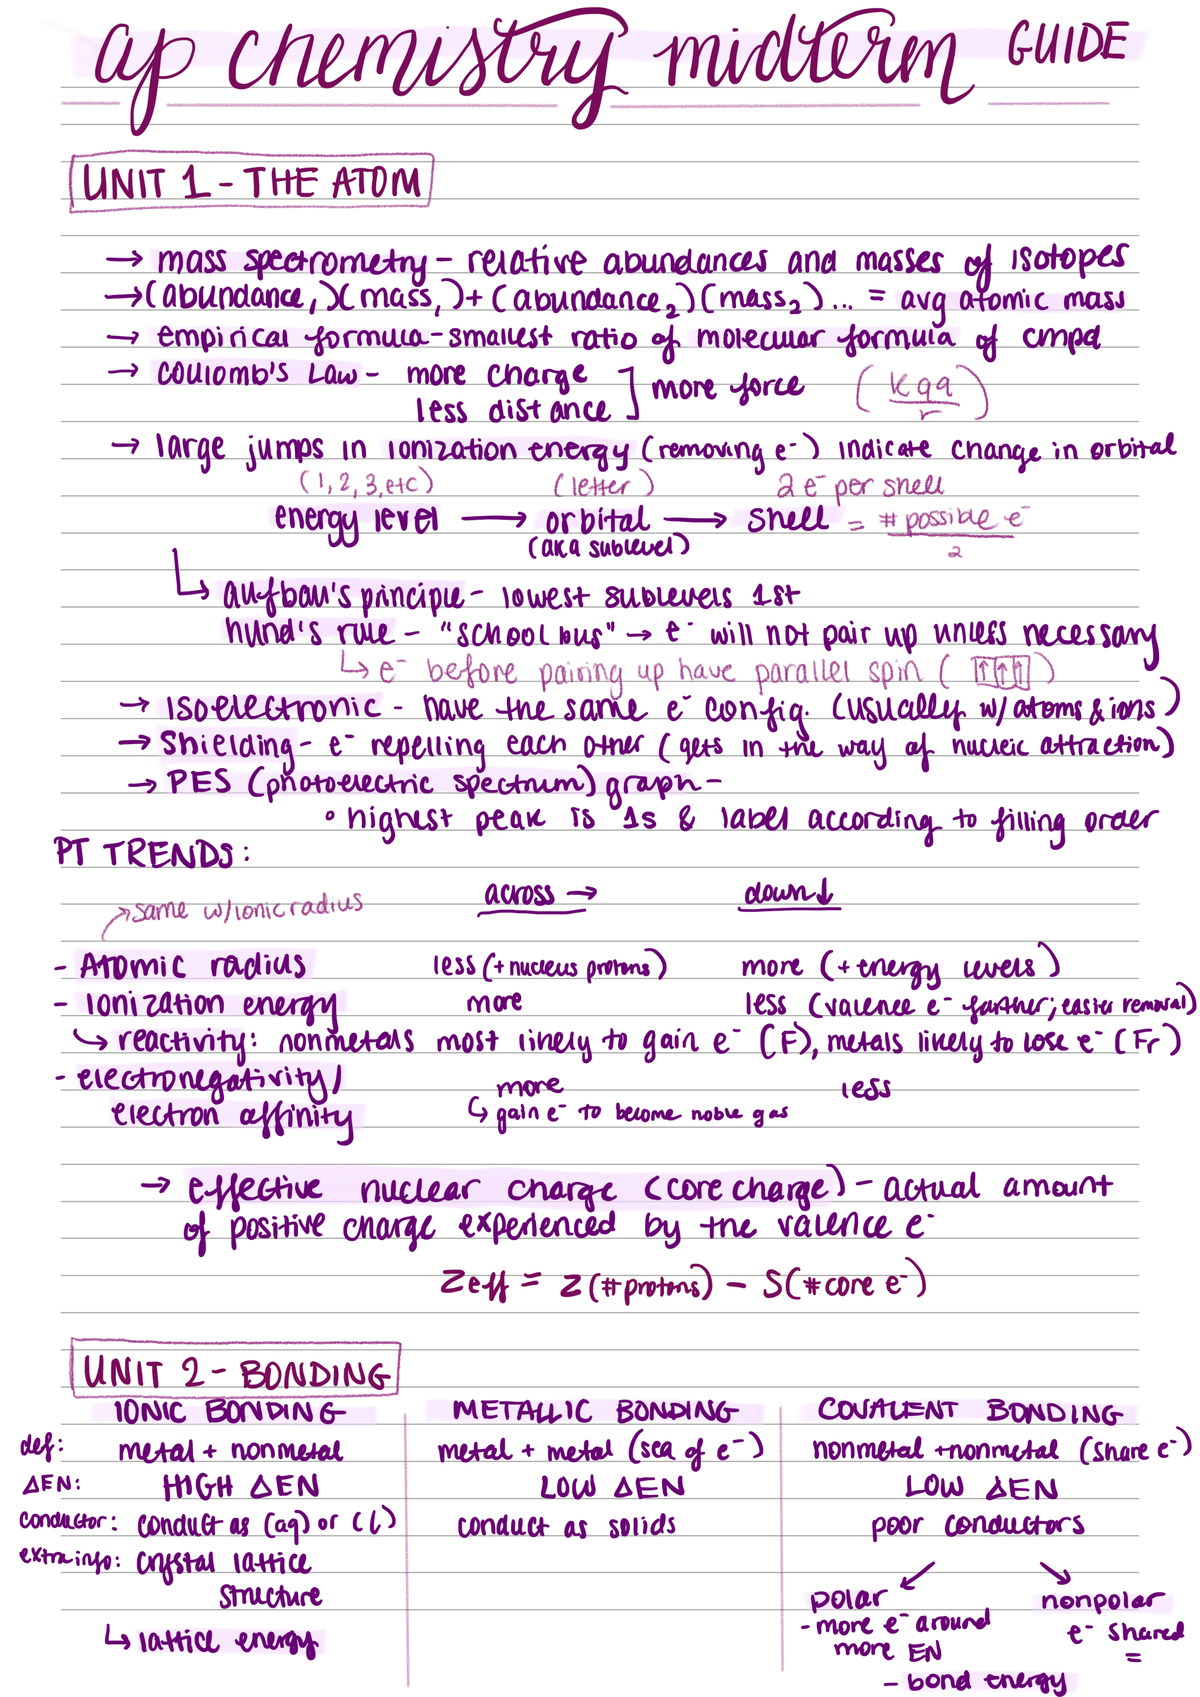 ap chemistry midterm GUIDE
UNIT 1 - THE ATOM
→ mass spectrometry - relative abundances and masses of isotopes
→ (abundance₁)(mass₁) + (abundance₂)(mass₂)... = avg atomic mass
→ empirical formula - smallest ratio of molecular formula of cmpd
→ coulomb's Law - more charge
less distance ] more force (kqq/r)
→ large jumps in ionization energy (removing e⁻) indicate change in orbital
(1, 2, 3, etc) (letter) 2 e⁻ per shell
energy level → orbital → shell = # possible e⁻ / 2
(aka sublevel)
↳ aufbau's principle - lowest sublevels 1st
hund's rule - "school bus" → e⁻ will not pair up unless necessary
↳ e⁻ before pairing up have parallel spin ( ↑ ↑ ↑ )
→ isoelectronic - have the same e⁻ config. (usually w/ atoms & ions)
→ shielding - e⁻ repelling each other (gets in the way of nucleic attraction)
→ PES (photoelectric spectrum) graph -
• highest peak is 1s & label according to filling order
PT TRENDS:
across → down ↓
↗ same w/ ionic radius
- Atomic radius less (+ nucleus protons) more (+ energy levels)
- Ionization energy more less (valence e⁻ farther; easier removal)
↳ reactivity: nonmetals most likely to gain e⁻ (F), metals likely to lose e⁻ (Fr)
- electronegativity/ more less
electron affinity ↳ gain e⁻ to become noble gas
→ effective nuclear charge (core charge) - actual amount
of positive charge experienced by the valence e⁻
Zeff = Z (# protons) - S (# core e⁻)
UNIT 2 - BONDING
IONIC BONDING METALLIC BONDING COVALENT BONDING
def: metal + nonmetal metal + metal (sea of e⁻) nonmetal + nonmetal (share e⁻)
ΔEN: HIGH ΔEN LOW ΔEN LOW ΔEN
conductor: conduct as (aq) or (l) conduct as solids poor conductors
extra info: crystal lattice
structure
↳ lattice energy
polar nonpolar
- more e⁻ around e⁻ shared
more EN =
- bond energy